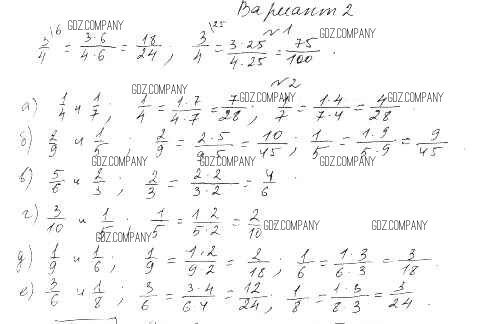 Вариант 2
№1
3/4 \6 = 3·6/4·6 = 18/24 ; 3/4 \25 = 3·25/4·25 = 75/100 .
№2
а) 1/4 и 1/7 ; 1/4 = 1·7/4·7 = 7/28 ; 1/7 = 1·4/7·4 = 4/28
б) 2/9 и 1/5 ; 2/9 = 2·5/9·5 = 10/45 ; 1/5 = 1·9/5·9 = 9/45 .
в) 5/6 и 2/3 ; 2/3 = 2·2/3·2 = 4/6
г) 3/10 и 1/5 ; 1/5 = 1·2/5·2 = 2/10
д) 1/9 и 1/6 ; 1/9 = 1·2/9·2 = 2/18 ; 1/6 = 1·3/6·3 = 3/18 .
е) 3/6 и 1/8 ; 3/6 = 3·4/6·4 = 12/24 ; 1/8 = 1·3/8·3 = 3/24 .
GDZ.COMPANY
GDZ.COMPANY
GDZ.COMPANY
GDZ.COMPANY
GDZ.COMPANY
GDZ.COMPANY
GDZ.COMPANY
GDZ.COMPANY
GDZ.COMPANY
GDZ.COMPANY
GDZ.COMPANY